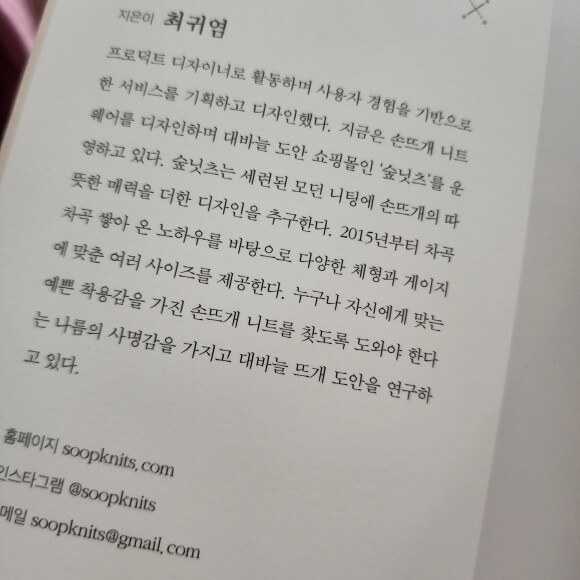 지은이 최귀염
프로덕트 디자이너로 활동하며 사용자 경험을 기반으로
한 서비스를 기획하고 디자인했다. 지금은 손뜨개 니트
웨어를 디자인하며 대바늘 도안 쇼핑몰인 '숲닛츠'를 운
영하고 있다. 숲닛츠는 세련된 모던 니팅에 손뜨개의 따
뜻한 매력을 더한 디자인을 추구한다. 2015년부터 차곡
차곡 쌓아 온 노하우를 바탕으로 다양한 체형과 게이지
에 맞춘 여러 사이즈를 제공한다. 누구나 자신에게 맞는
예쁜 착용감을 가진 손뜨개 니트를 찾도록 도와야 한다
는 나름의 사명감을 가지고 대바늘 뜨개 도안을 연구하
고 있다.
홈페이지 soopknits.com
인스타그램 @soopknits
메일 soopknits@gmail.com